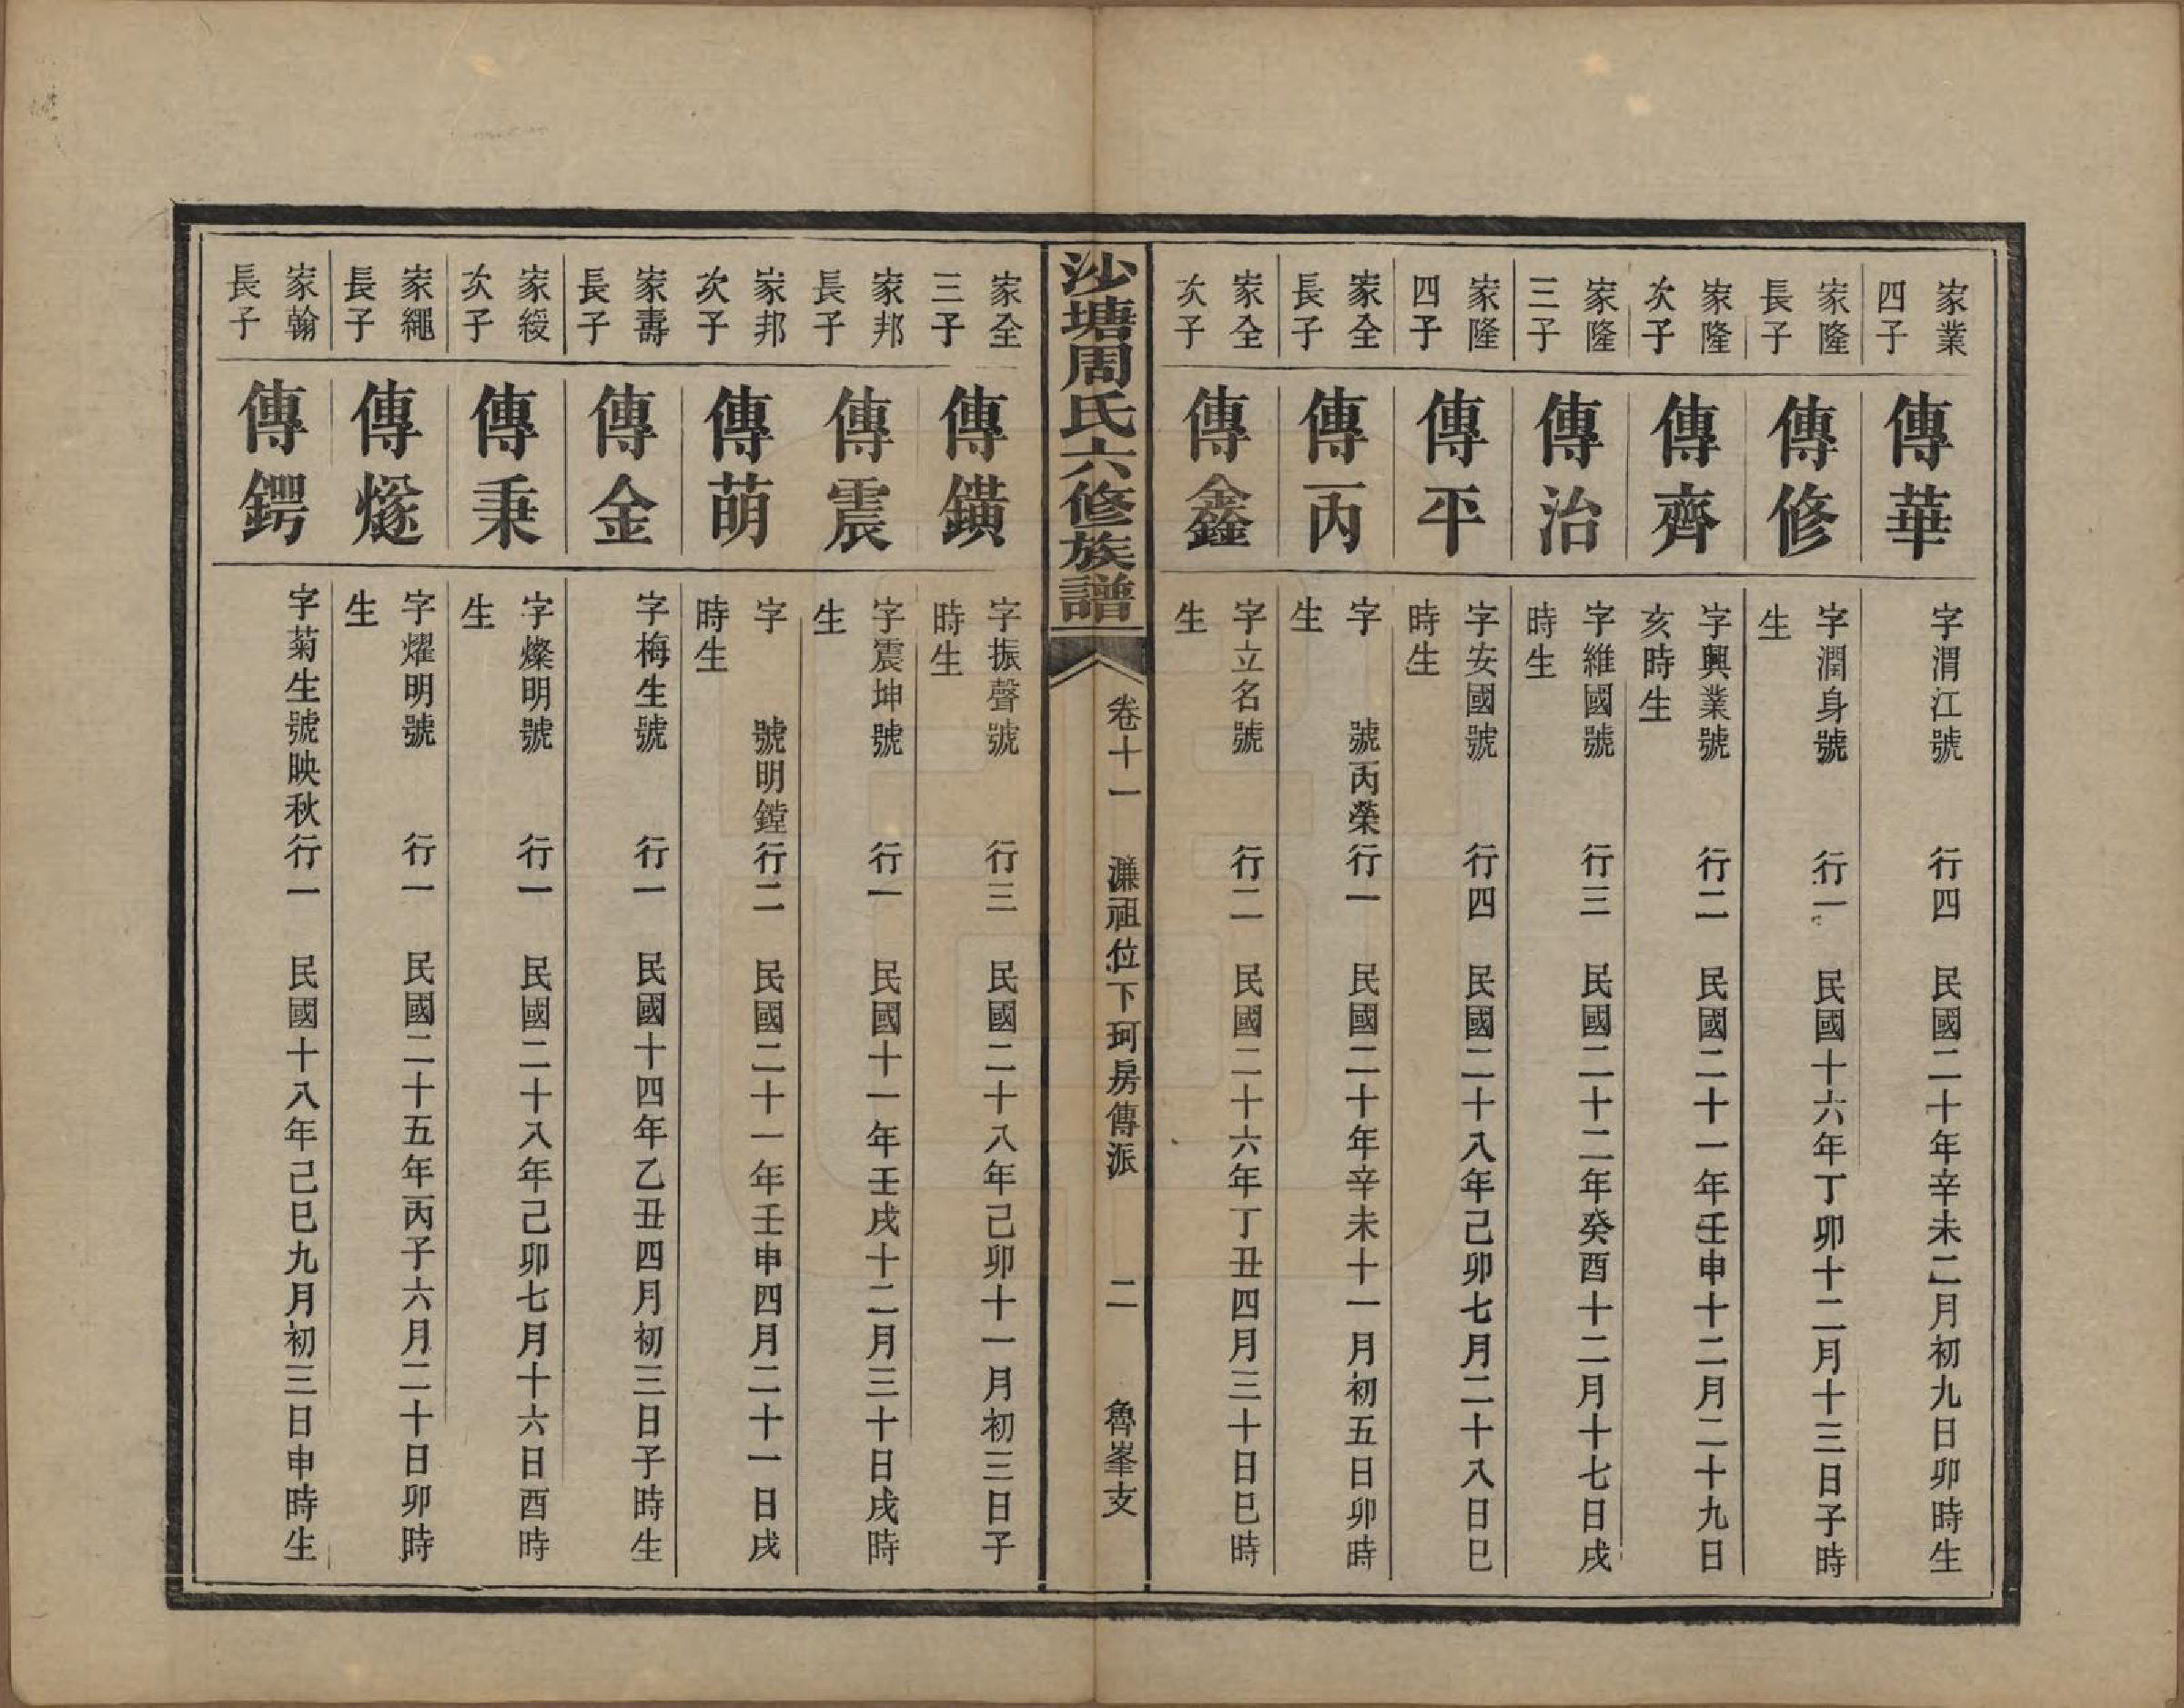 家業
四子
傳華
字渭江號　行四　民國二十年辛未二月初九日卯時生
家隆
長子
傳修
字潤身號　行一　民國十六年丁卯十二月十三日子時
生
家隆
次子
傳齊
字興業號　行二　民國二十一年壬申十二月二十九日
亥時生
家隆
三子
傳治
字維國號　行三　民國二十二年癸酉十二月十七日戌
時生
家隆
四子
傳平
字安國號　行四　民國二十八年己卯七月二十八日巳
時生
家全
長子
傳丙
字　號丙榮行一　民國二十年辛未十一月初五日卯時
生
家全
次子
傳鑫
字立名號　行二　民國二十六年丁丑四月三十日巳時
生
沙塘周氏六修族譜
卷十一　濂祖位下珂房傳派　二　魯峯支
家全
三子
傳鐄
字振聲號　行三　民國二十八年己卯十一月初三日子
時生
家邦
長子
傳震
字震坤號　行一　民國十一年壬戌十二月三十日戌時
生
家邦
次子
傳萌
字　號明鏜行二　民國二十一年壬申四月二十一日戌
時生
家壽
長子
傳金
字梅生號　行一　民國十四年乙丑四月初三日子時生
家綬
次子
傳秉
字燦明號　行一　民國二十八年己卯七月十六日酉時
生
家繩
長子
傳燧
字燿明號　行一　民國二十五年丙子六月二十日卯時
生
家翰
長子
傳鍔
字菊生號映秋行一　民國十八年己巳九月初三日申時生